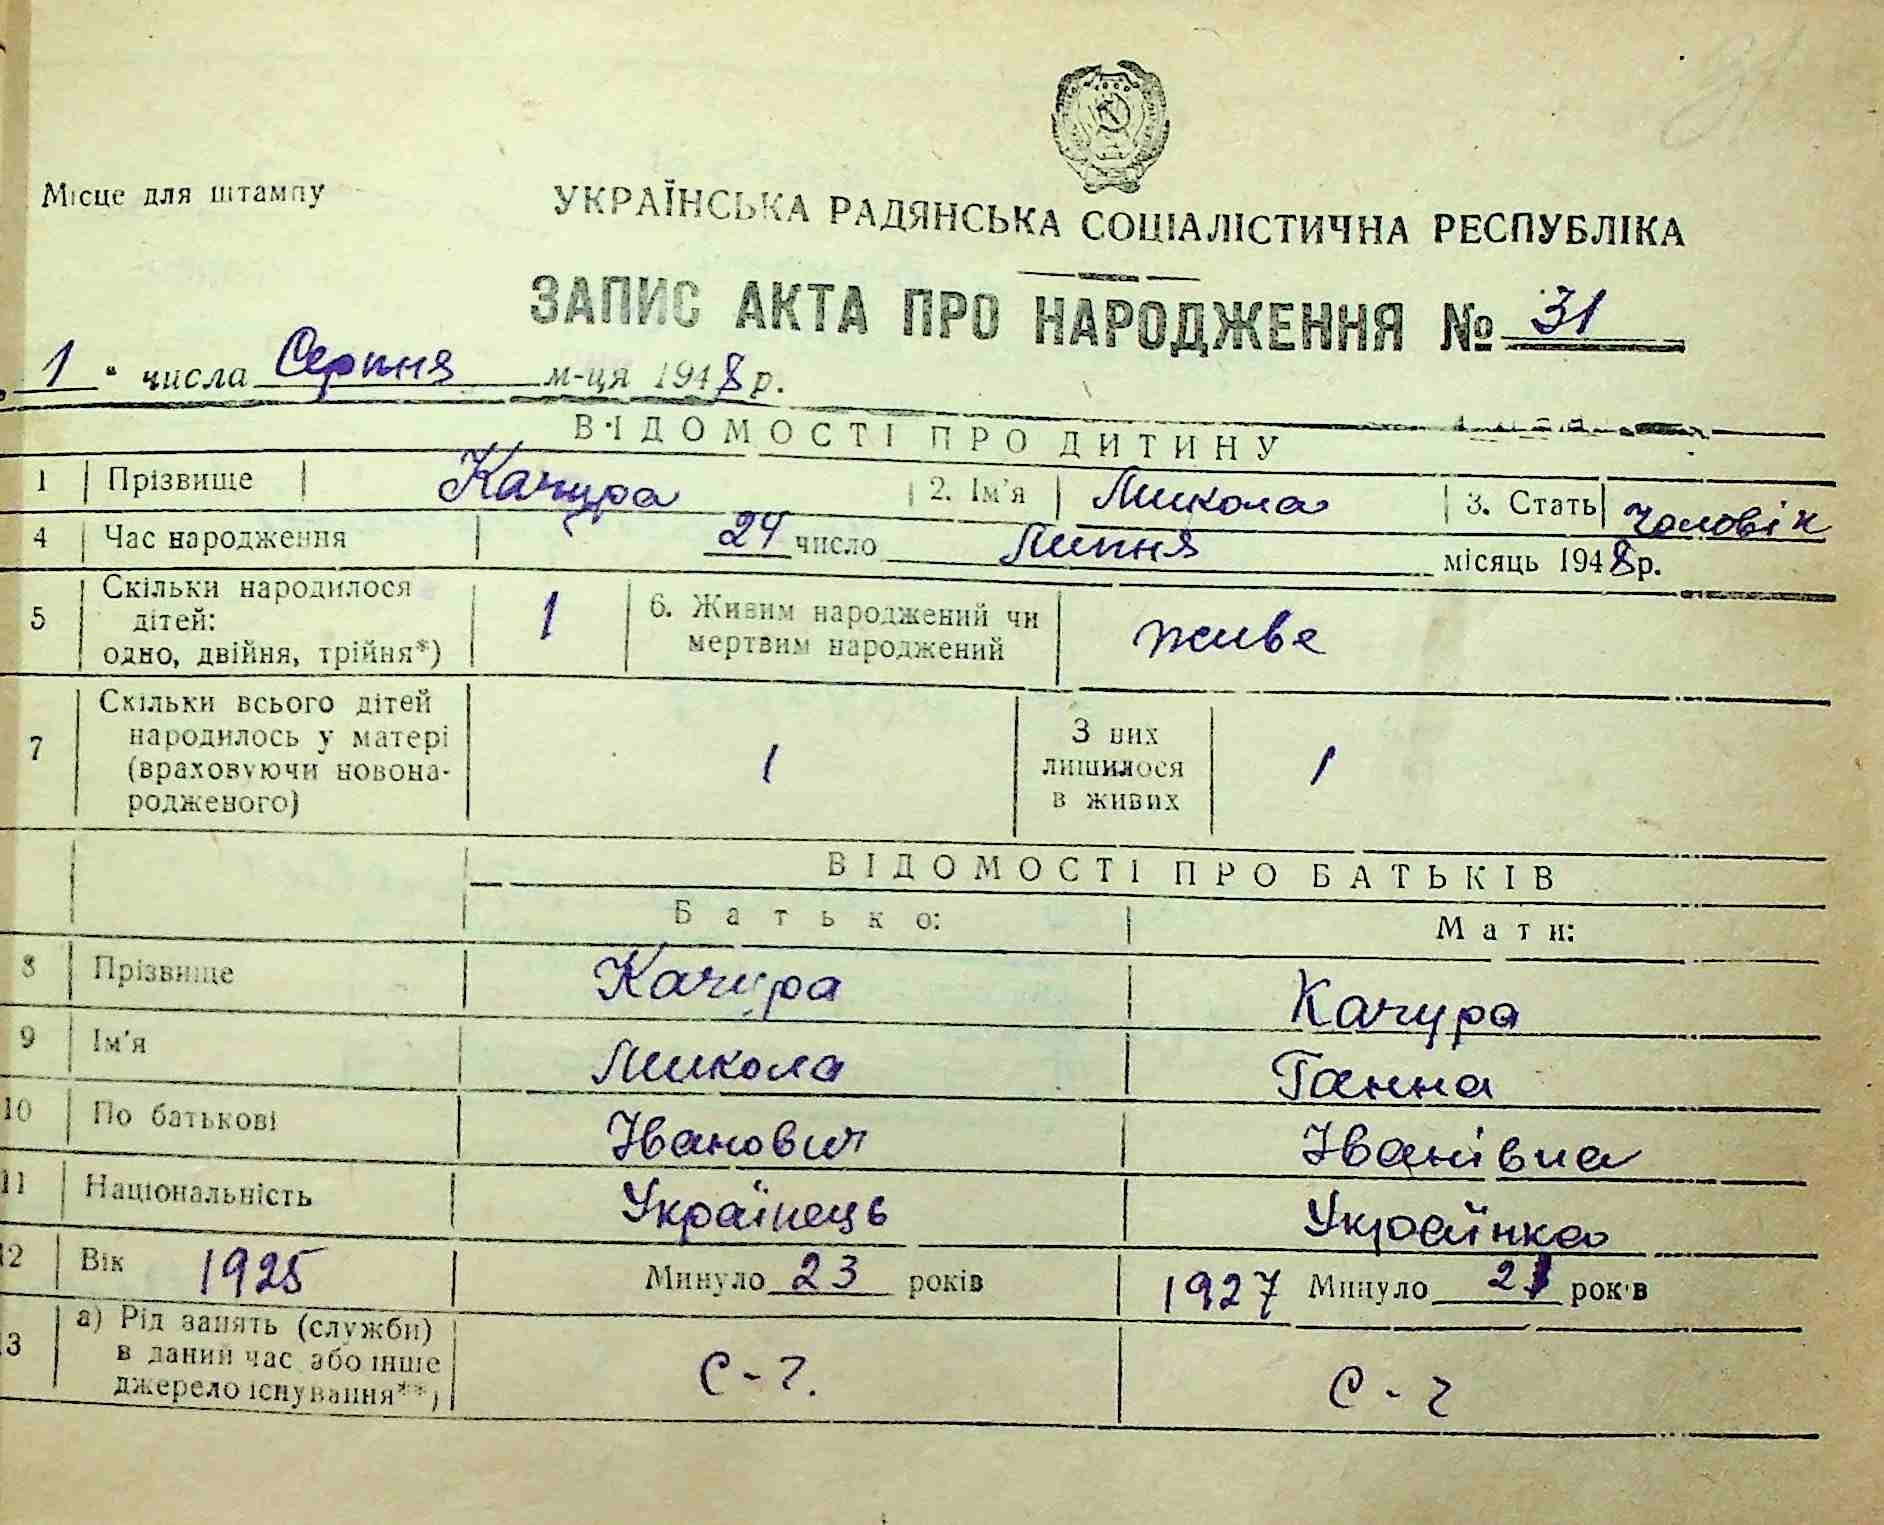 Місце для штампу
УКРАЇНСЬКА РАДЯНСЬКА СОЦІАЛІСТИЧНА РЕСПУБЛІКА
ЗАПИС АКТА ПРО НАРОДЖЕННЯ № 31
„1“ числа Серпня м-ця 1948 р.
ВІДОМОСТІ ПРО ДИТИНУ
1 Прізвище Качура 2. Ім'я Микола 3. Стать чоловік
4 Час народження 24 число Липня місяць 1948 р.
5 Скільки народилося дітей: одно, двійня, трійня*) 1 6. Живим народжений чи мертвим народжений живе
7 Скільки всього дітей народилось у матері (враховуючи новонародженого) 1 З них лишилося в живих 1
ВІДОМОСТІ ПРО БАТЬКІВ
Батько: Мати:
8 Прізвище Качура Качура
9 Ім'я Микола Ганна
10 По батькові Іванович Іванівна
11 Національність Українець Українка
12 Вік 1925 Минуло 23 років 1927 Минуло 21 років
13 а) Рід занять (служби) в даний час або інше джерело існування**) С-г. С-г